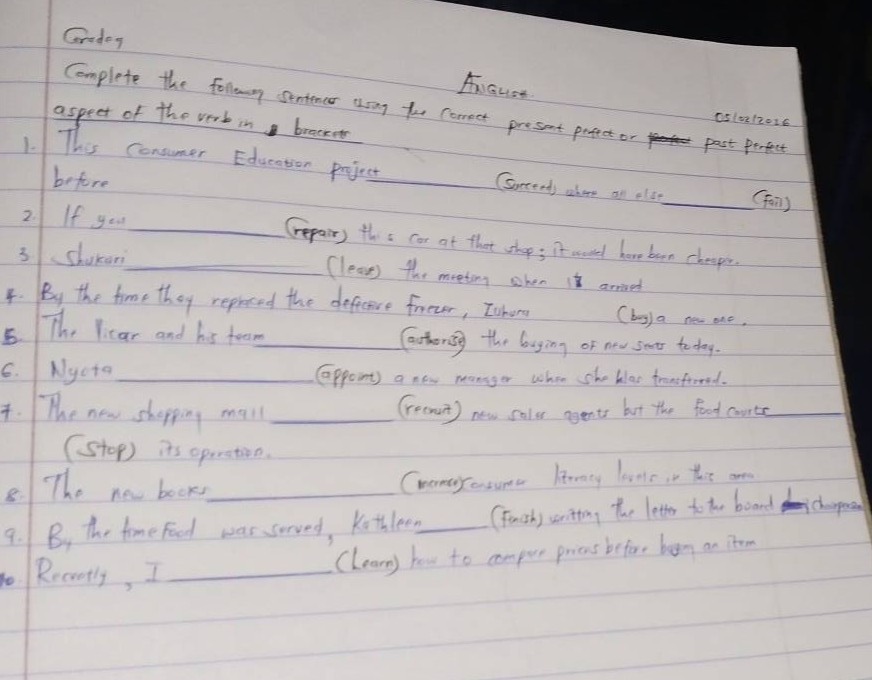 Grade 9
English
05/02/2026
Complete the following sentences using the correct present perfect or past perfect
aspect of the verb in brackets
1. This Consumer Education project ________ (succeed) where all else ________ (fail)
before
2. If you ________ (repair) this car at that shop; it would have been cheaper.
3 Shukuri ________ (leave) the meeting when I arrived
4. By the time they replaced the defective freezer, Zuhura (buy) a new one.
5. The Vicar and his team ________ (authorise) the buying of new seats today.
6. Nyota ________ (appoint) a new manager when she was transferred.
7. The new shopping mall ________ (recruit) new sales agents but the food courts ________
(stop) its operation.
8. The new books ________ (increase) consumer literacy levels in this area
9. By the time food was served, Kathleen ________ (finish) writing the letter to the board chairperson
10. Recently, I ________ (learn) how to compare prices before buying an item